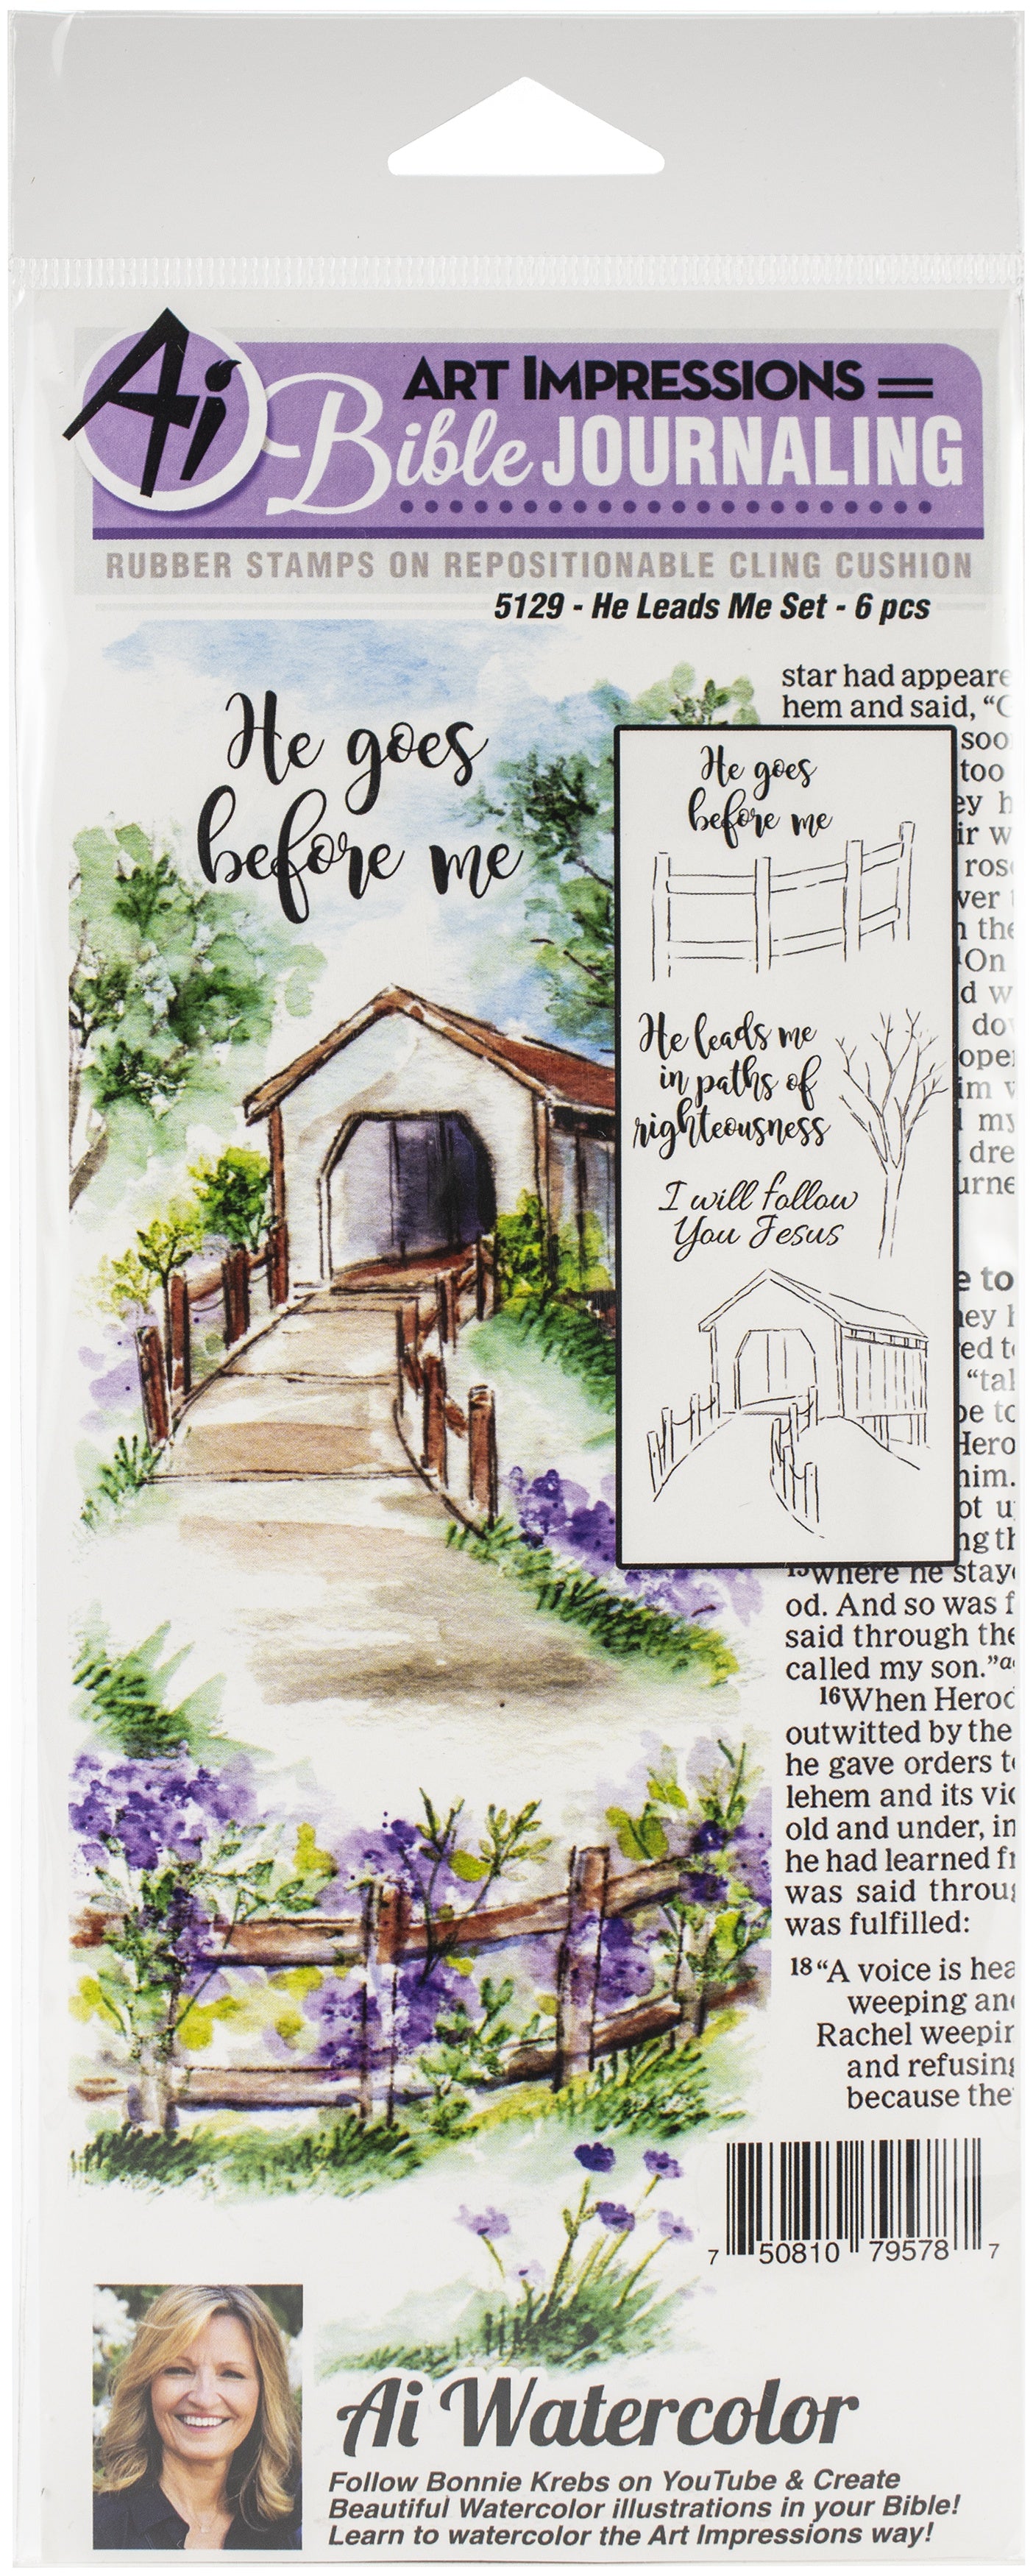 Ai
ART IMPRESSIONS
Bible JOURNALING
RUBBER STAMPS ON REPOSITIONABLE CLING CUSHION
5129 - He Leads Me Set - 6 pcs
He goes
before me
He goes
before me
He leads me
in paths of
righteousness
I will follow
You Jesus
star had
hem and said, “
soo
too
ey h
ir w
rose
ver
n the
On
d w
do
ope
im
my
dre
urne
e to
ey
ed t
“tal
be to
Hero
him.
ot u
ng th
15where he stay
od. And so was f
said through the
called my son.”a
16When Herod
outwitted by the
he gave orders t
lehem and its vi
old and under, in
he had learned fr
was said throug
was fulfilled:
18“A voice is hea
weeping an
Rachel weepin
and refusing
because the
7 50810 79578 7
Ai Watercolor
Follow Bonnie Krebs on YouTube & Create
Beautiful Watercolor illustrations in your Bible!
Learn to watercolor the Art Impressions way!